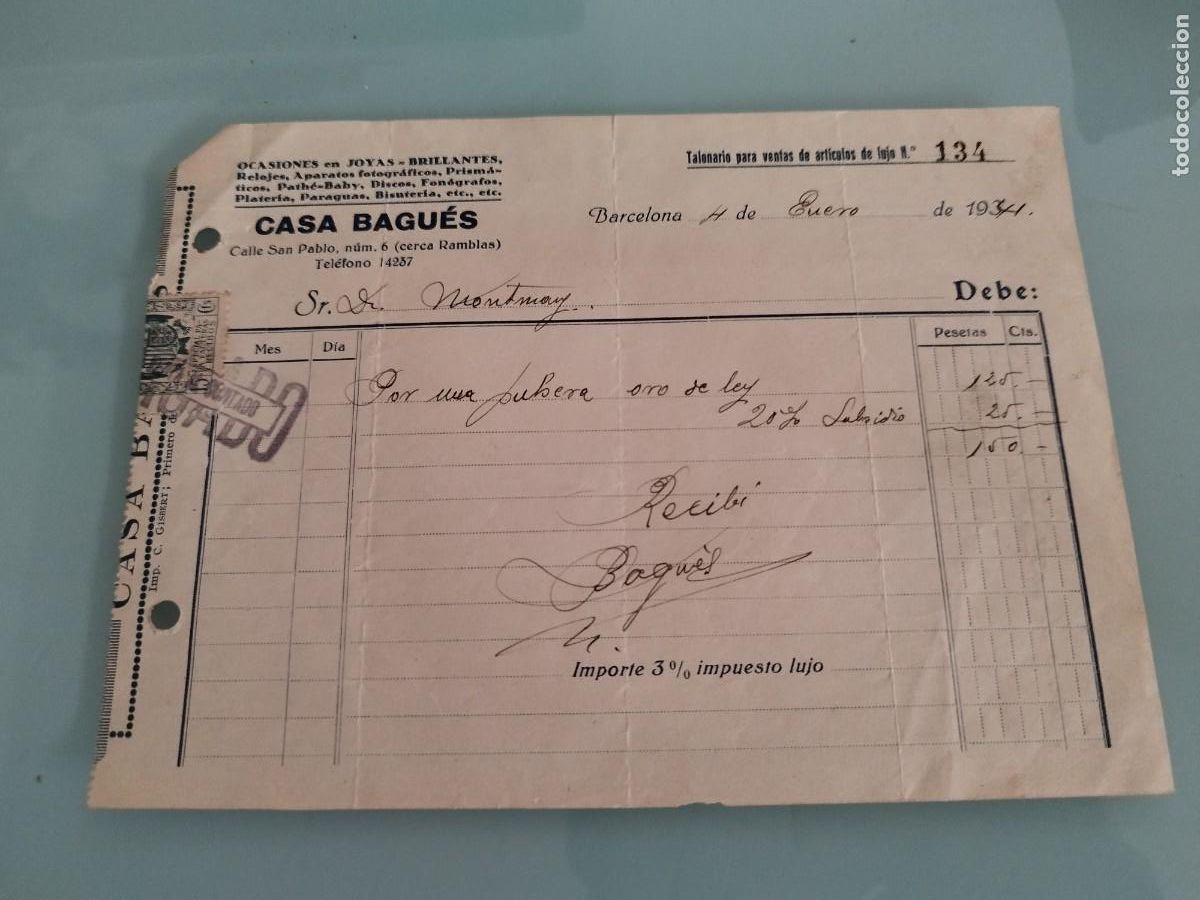 OCASIONES en JOYAS - BRILLANTES,
Relojes, Aparatos fotográficos, Prismá-
ticos, Pathé-Baby, Discos, Fonógrafos,
Platería, Paraguas, Bisutería, etc., etc.
CASA BAGUÉS
Calle San Pablo, núm. 6 (cerca Ramblas)
Teléfono 14237
Talonario para ventas de artículos de lujo N.º 134
Barcelona 4 de Enero de 1934.
Sr. Dr. Montmany.
Debe:
Mes Día Pesetas Cts.
Por una pulsera oro de ley 125.-
20% Subsidio 25.-
150.-
Recibí
Bagués
Importe 3% impuesto lujo
CASA BA
Imp. C. GISBERT; Primero de
CONTADO
todocoleccion